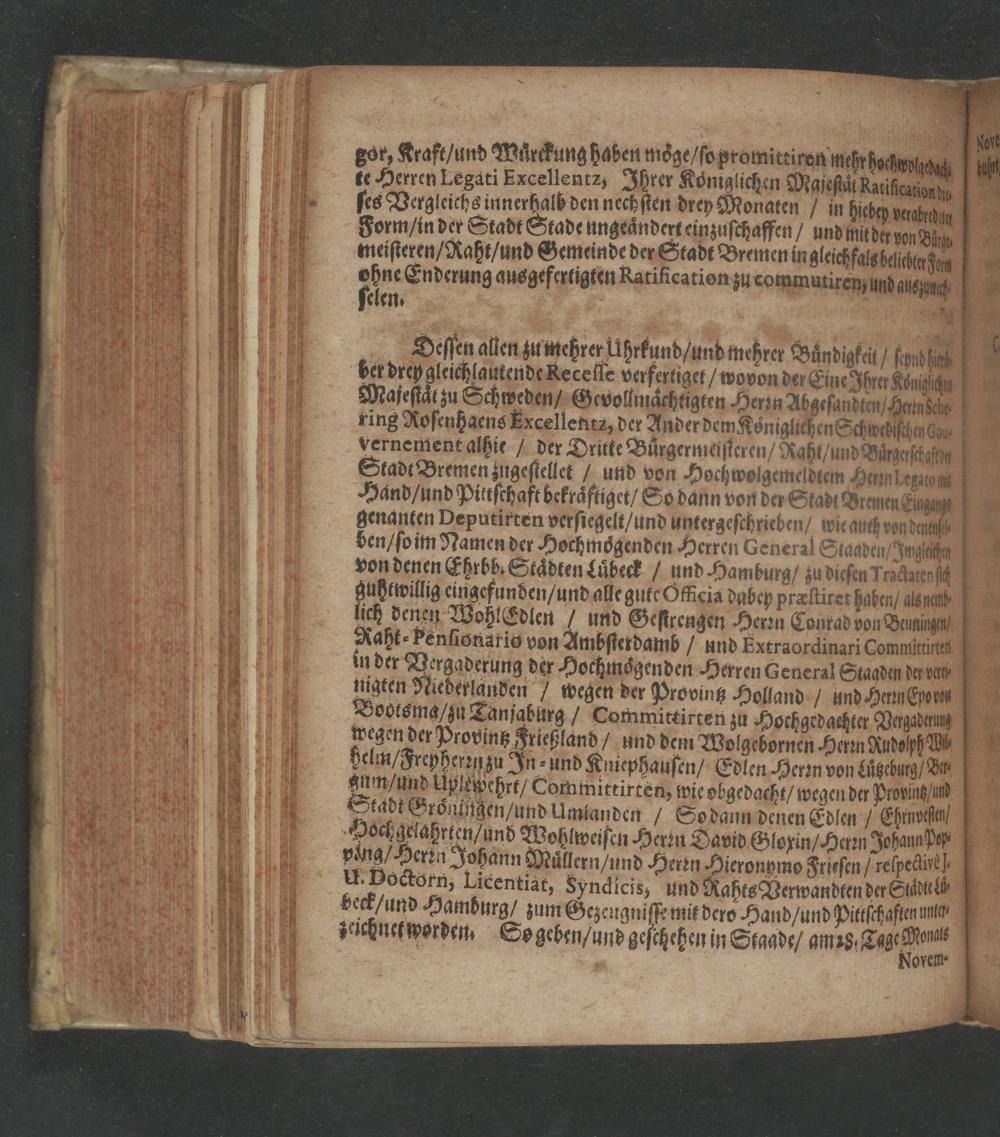 gor, Kraft/und Würckung haben möge/so promittiren mehr hochwolgedach-
te Herren Legati Excellentz, Ihrer Königlichen Majestät Ratification die-
ses Vergleichs innerhalb den nechsten drey Monaten / in hiebey verabredeter
Form/in der Stadt Stade ungeändert einzuschaffen / und mit der von Bürge-
meisteren/Raht/und Gemeinde der Stadt Bremen in gleichfals beliebter Form
ohne Enderung ausgefertigten Ratification zu commutiren, und auszuwech-
selen.
Dessen allen zu mehrer Uhrkund/und mehrer Bündigkeit / seynd hierü-
ber drey gleichlautende Recesse verfertiget / wovon der Eine Ihrer Königlichen
Majestät zu Schweden/ Gevollmächtigten Herrn Abgesandten/Herrn Sche-
ring Rosenhaens Excellentz, der Ander dem Königlichen Schwedischen Gou-
vernement alhie / der Dritte Bürgermeisteren/ Raht/und Bürgerschaft der
Stadt Bremen zugestellet / und von Hochwolgemeldtem Herrn Legato mit
Hand/und Pittschaft bekräftiget/ So dann von der Stadt Bremen Eingangs
genanten Deputirten versiegelt/und untergeschrieben/ wie auch von denensel-
ben/so im Namen der Hochmögenden Herren General Staaden/Imgleichen
von denen Ehrbb. Städten Lübeck / und Hamburg/ zu diesen Tractaten sich
guhtwillig eingefunden/und alle gute Officia dabey præstiret haben/ als nemb-
lich denen WohlEdlen / und Gestrengen Herrn Conrad von Beuningen/
Raht-Pensionario von Ambsterdamb / und Extraordinari Committirten
in der Vergaderung der Hochmögenden Herren General Staaden der verei-
nigten Niederlanden / wegen der Provintz Holland / und Herrn Epo von
Bootsma/zu Tanjaburg / Committirten zu Hochgedachter Vergaderung
wegen der Provintz Frießland / und dem Wolgebornen Herrn Rudolph Wil-
helm/Freyherrn zu In- und Kniephausen/ Edlen Herrn von Lützeburg/ Ber-
gum/und Uplewehrt/ Committirten, wie obgedacht/ wegen der Provintz/und
Stadt Gröningen/und Umlanden / So dann denen Edlen / Ehrnvesten/
Hochgelahrten/und Wohlweisen Herrn David Gloxin/Herrn Johann Pop-
ping/Herrn Johann Müllern/und Herrn Hieronymo Friesen / respective J.
U. Doctorn, Licentiat, Syndicis, und Rahts Verwandten der Städte Lü-
beck/und Hamburg/ zum Gezeugnisse mit dero Hand/und Pittschaften unter-
zeichnet worden. So geben/und geschehen in Staade/ am 28. Tage Monats
Novem-